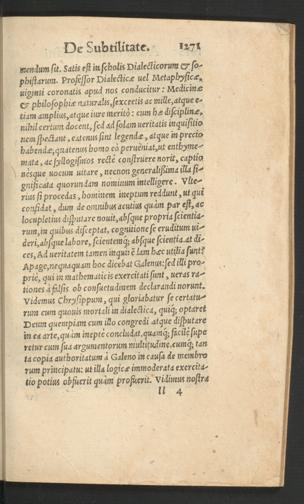 De Subtilitate. 1271
mendum sit. Satis est in scholis Dialecticorum & so-
phistarum. Professor Dialecticæ uel Metaphysicæ,
uiginti coronatis apud nos conducitur: Medicinæ
& philosophiæ naturalis, sexcentis ac mille, atque e-
tiam amplius, atque iure meritò: cum hæ disciplinæ,
nihil certum docent, sed ad solam ueritatis inquisitio
nem spectant, eatenus sint legendæ, atque in precio
habendæ, quatenus homo eò perueniat, ut enthyme-
mata, ac syllogismos rectè construere norit, captio
nésque uocum uitare, necnon generalissima illa si-
gnificata quorundam nominum intelligere. Vlte-
rius si procedas, hominem ineptum reddunt, ut qui
confidat, dum de omnibus acutius quàm par est, ac
locupletius disputare nouit, absque propria scientia-
rum, in quibus disceptat, cognitione se eruditum ui-
deri, absque labore, scientemq́; absque scientia. at di-
ces, Ad ueritatem tamen inquirẽdam hæc utilia sunt?
Apage, nequaquam hoc dicebat Galenus: sed illi pro-
priè, qui in mathematicis exercitati sunt, ueras ra-
tiones à falsis ob consuetudinem declarandi norunt.
Videmus Chrysippum, qui gloriabatur se certatu-
rum cum quouis mortali in dialectica, quiq́; optaret
Deum quempiam cum illo congredi atque disputare
in ea arte, quàm ineptè concludat, quamq́; facilè supe
retur cum sua argumentorum multitudine. cumq́; tan
ta copia authoritatum à Galeno in causa de membro
rum principatu: ut illa logicæ immoderata exercita-
tio potius obfuerit quàm profuerit. Vidimus nostra
ll 4